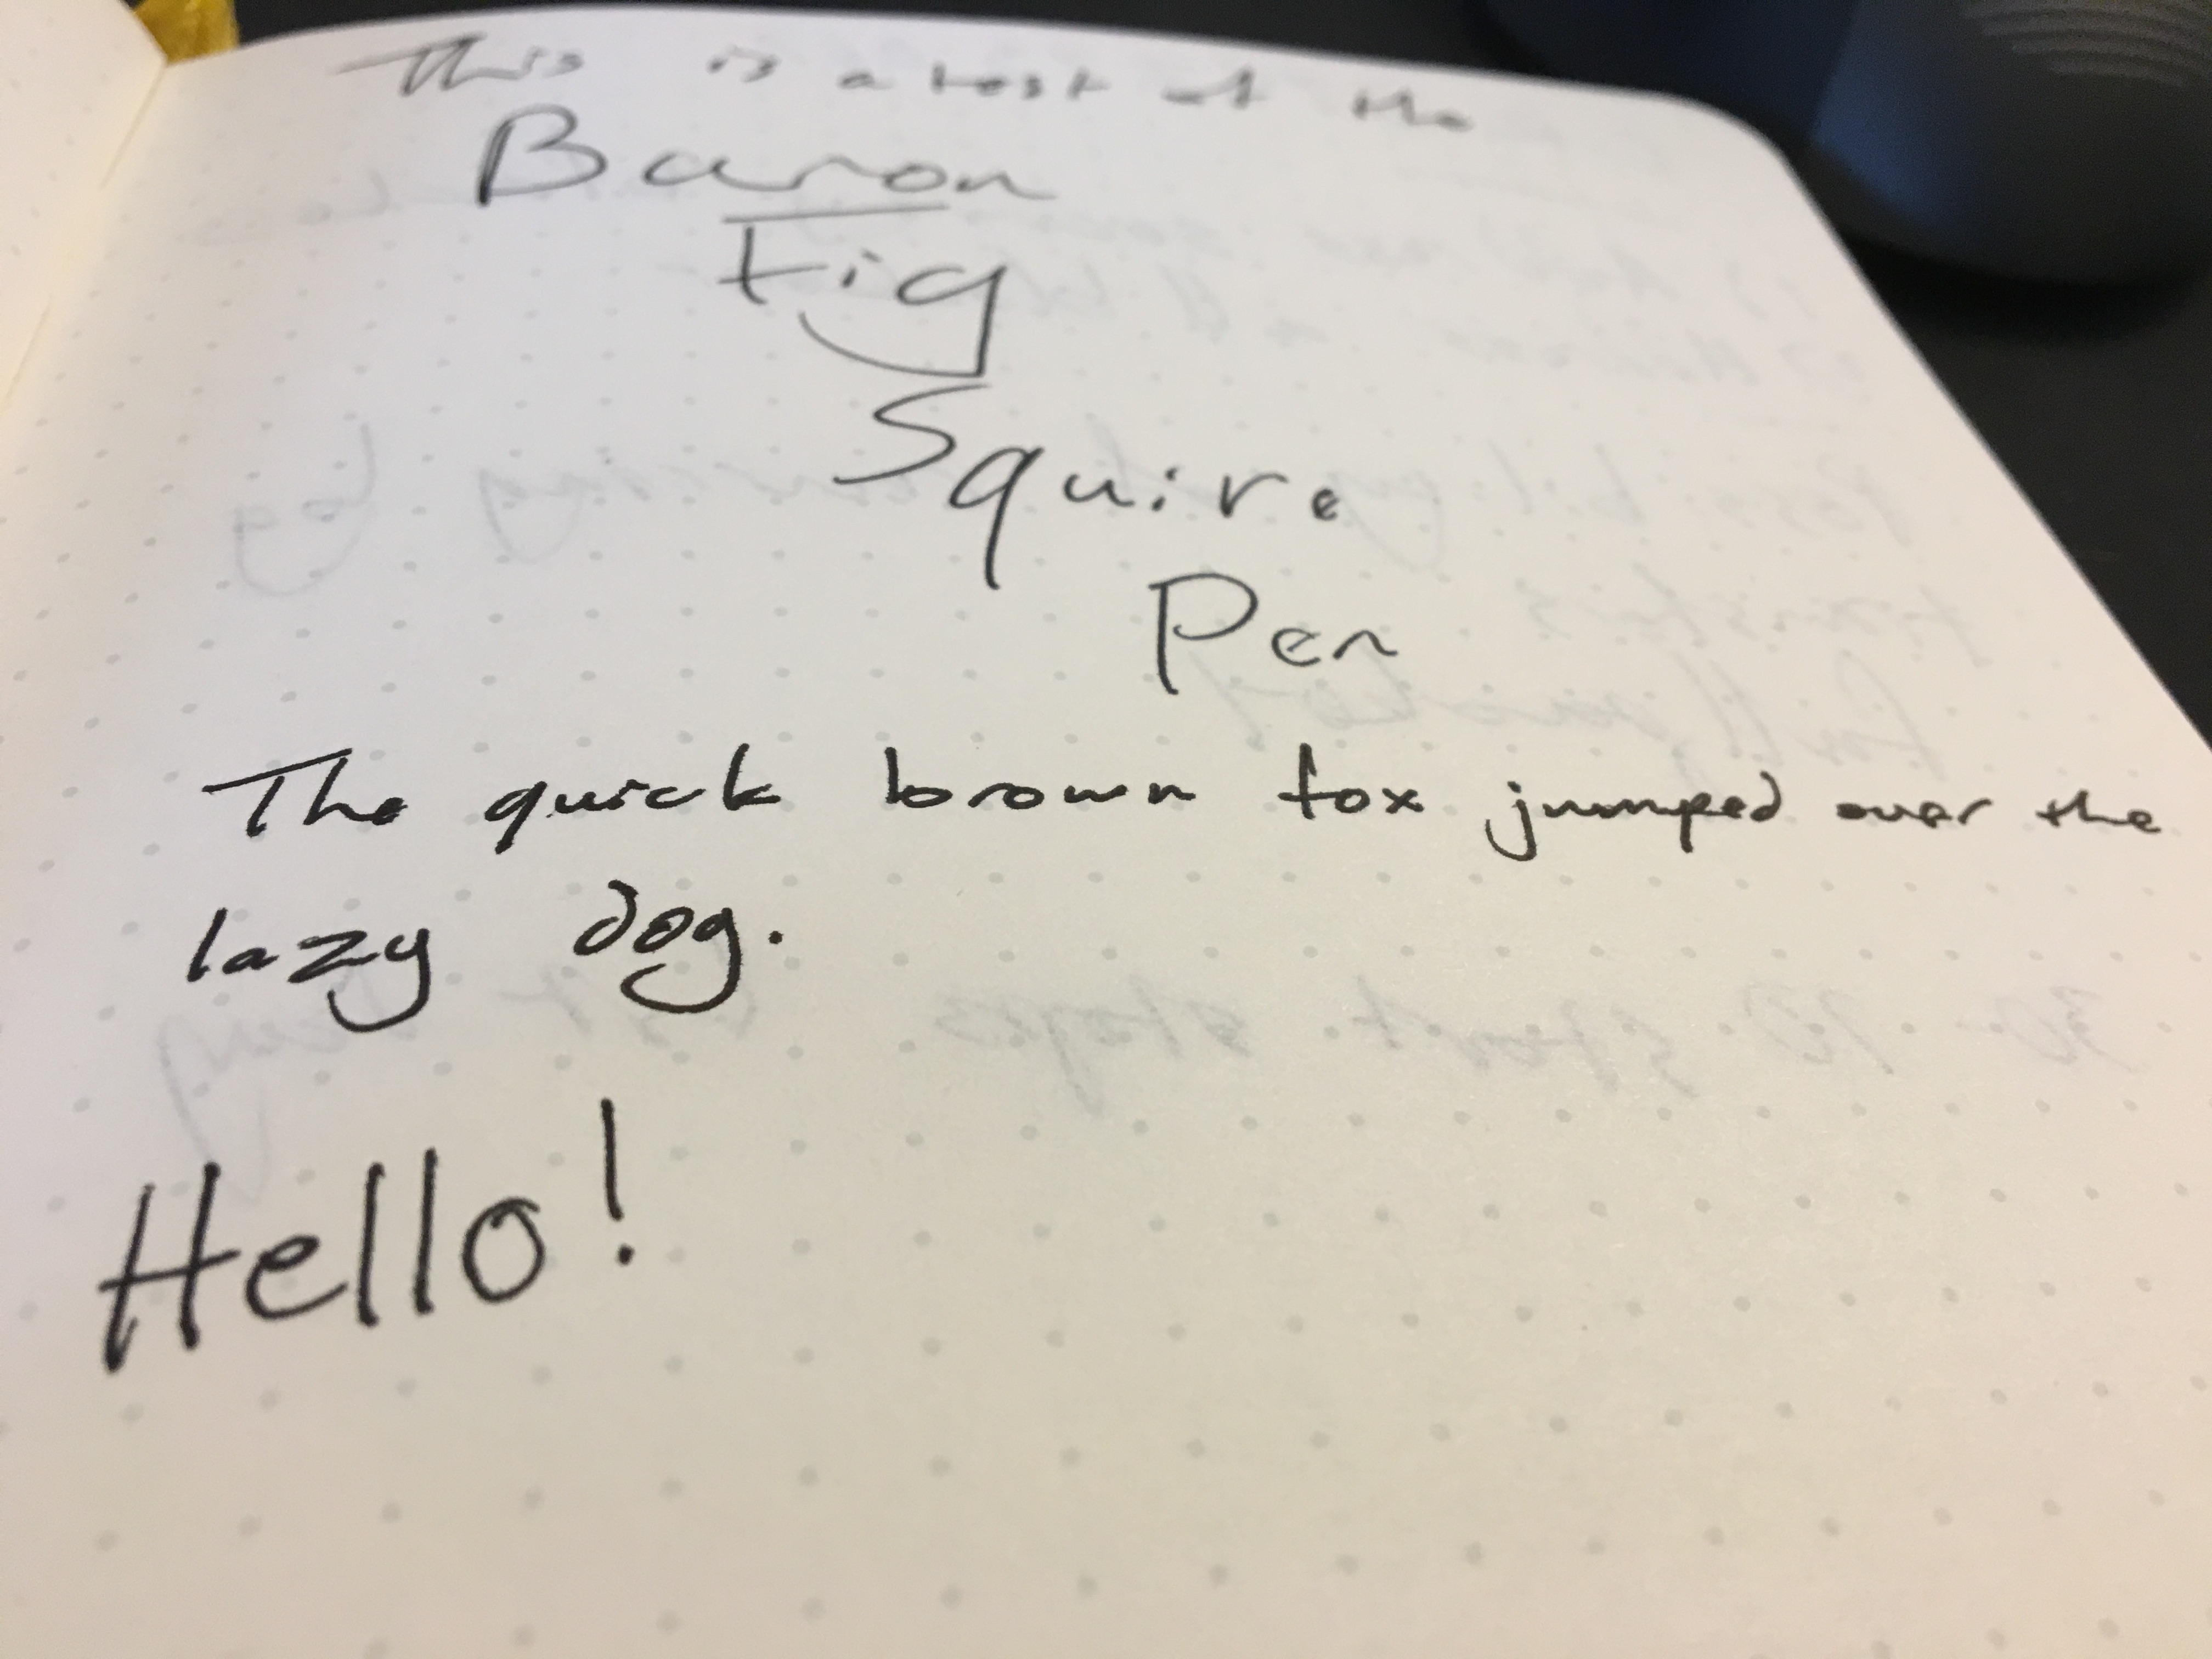 This is a test of the
Baron
Fig
Squire
Pen
The quick brown fox jumped over the
lazy dog.
Hello!